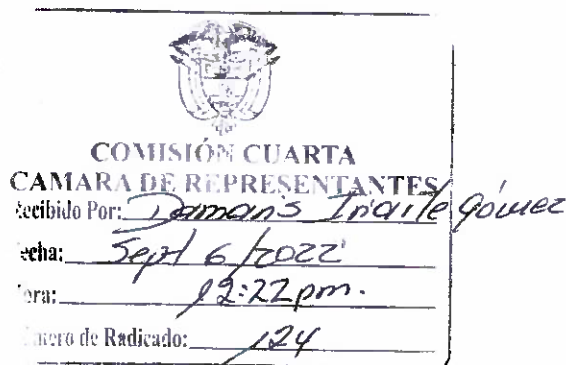 COMISIÓN CUARTA
CAMARA DE REPRESENTANTES
ecibido Por: Damaris Iriarte Gómez
echa: Sept 6/2022
ora: 12:22 pm.
mero de Radicado: 124